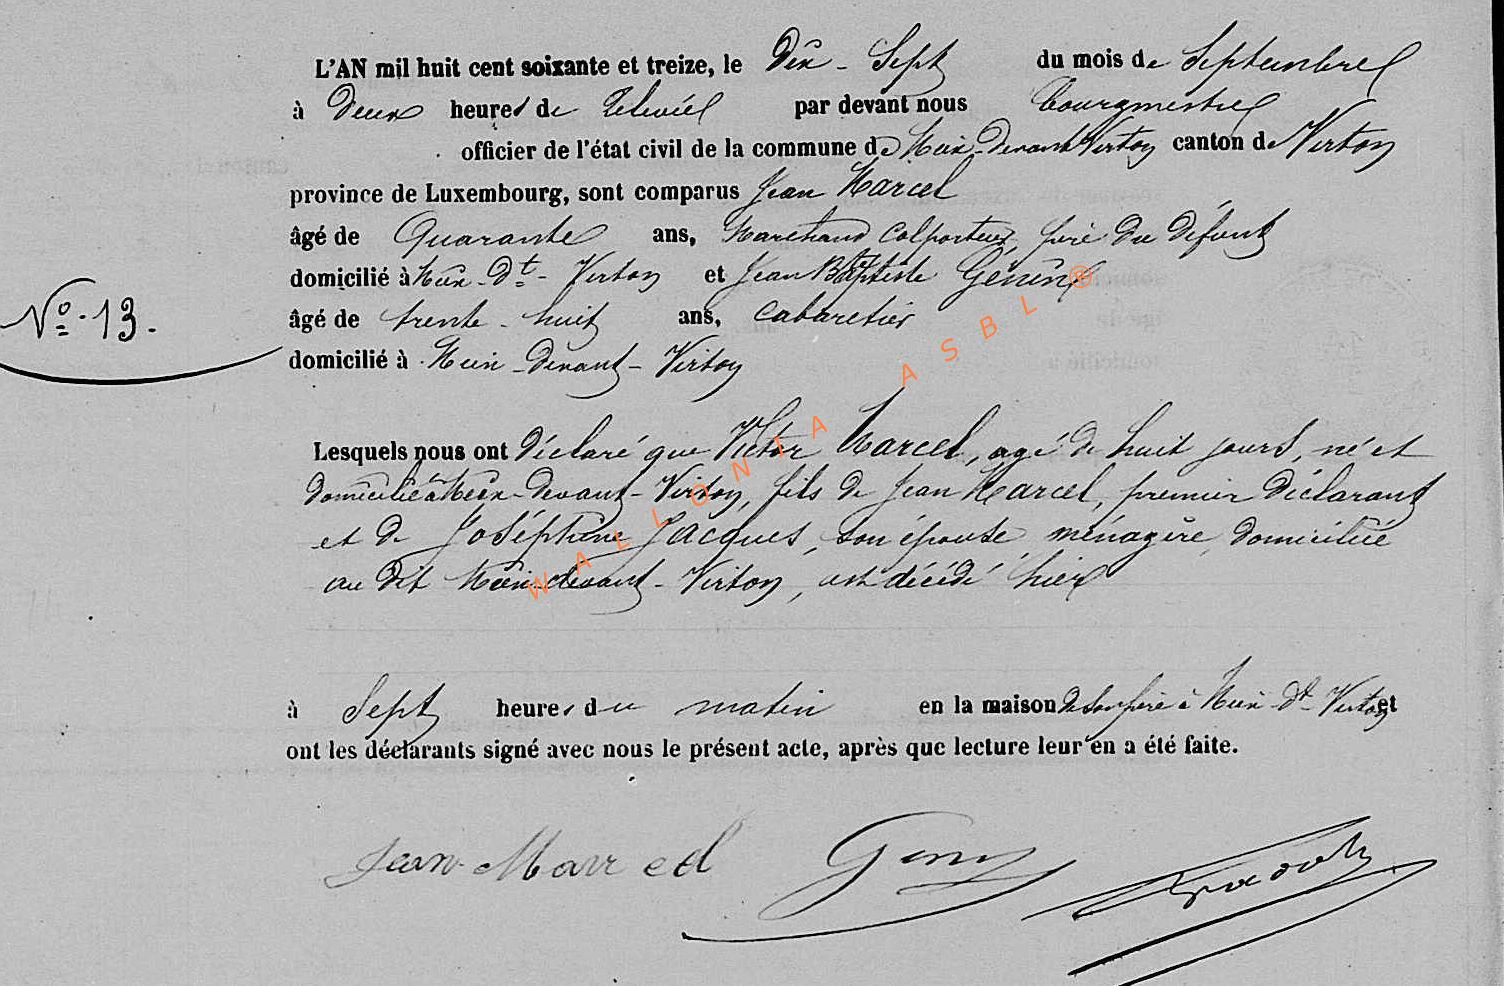 L'AN mil huit cent soixante et treize, le Dix-Sept du mois de Septembre
à Deux heures de Relevée par devant nous Bourgmestre
officier de l'état civil de la commune de Meix-Devant-Virton canton de Virton
province de Luxembourg, sont comparus Jean Marcel
âgé de Quarante ans, Marchand Colporteur, père du défunt
domicilié à Meix-Dt-Virton et Jean Baptiste Génin
N° 13.
âgé de trente-huit ans, Cabaretier
domicilié à Meix-Devant-Virton
Lesquels nous ont déclaré que Victor Marcel, agé de huit jours, né et
domicilié à Meix-devant-Virton, fils de Jean Marcel, premier déclarant
et de Joséphine Jacques, son épouse, ménagère, domiciliée
au dit Meix-devant-Virton, est décédé hier
à Sept heures du matin en la maison de son père à Meix-Dt-Virton et
ont les déclarants signé avec nous le présent acte, après que lecture leur en a été faite.
Jean Marcel
WALLONIA ASBL ®